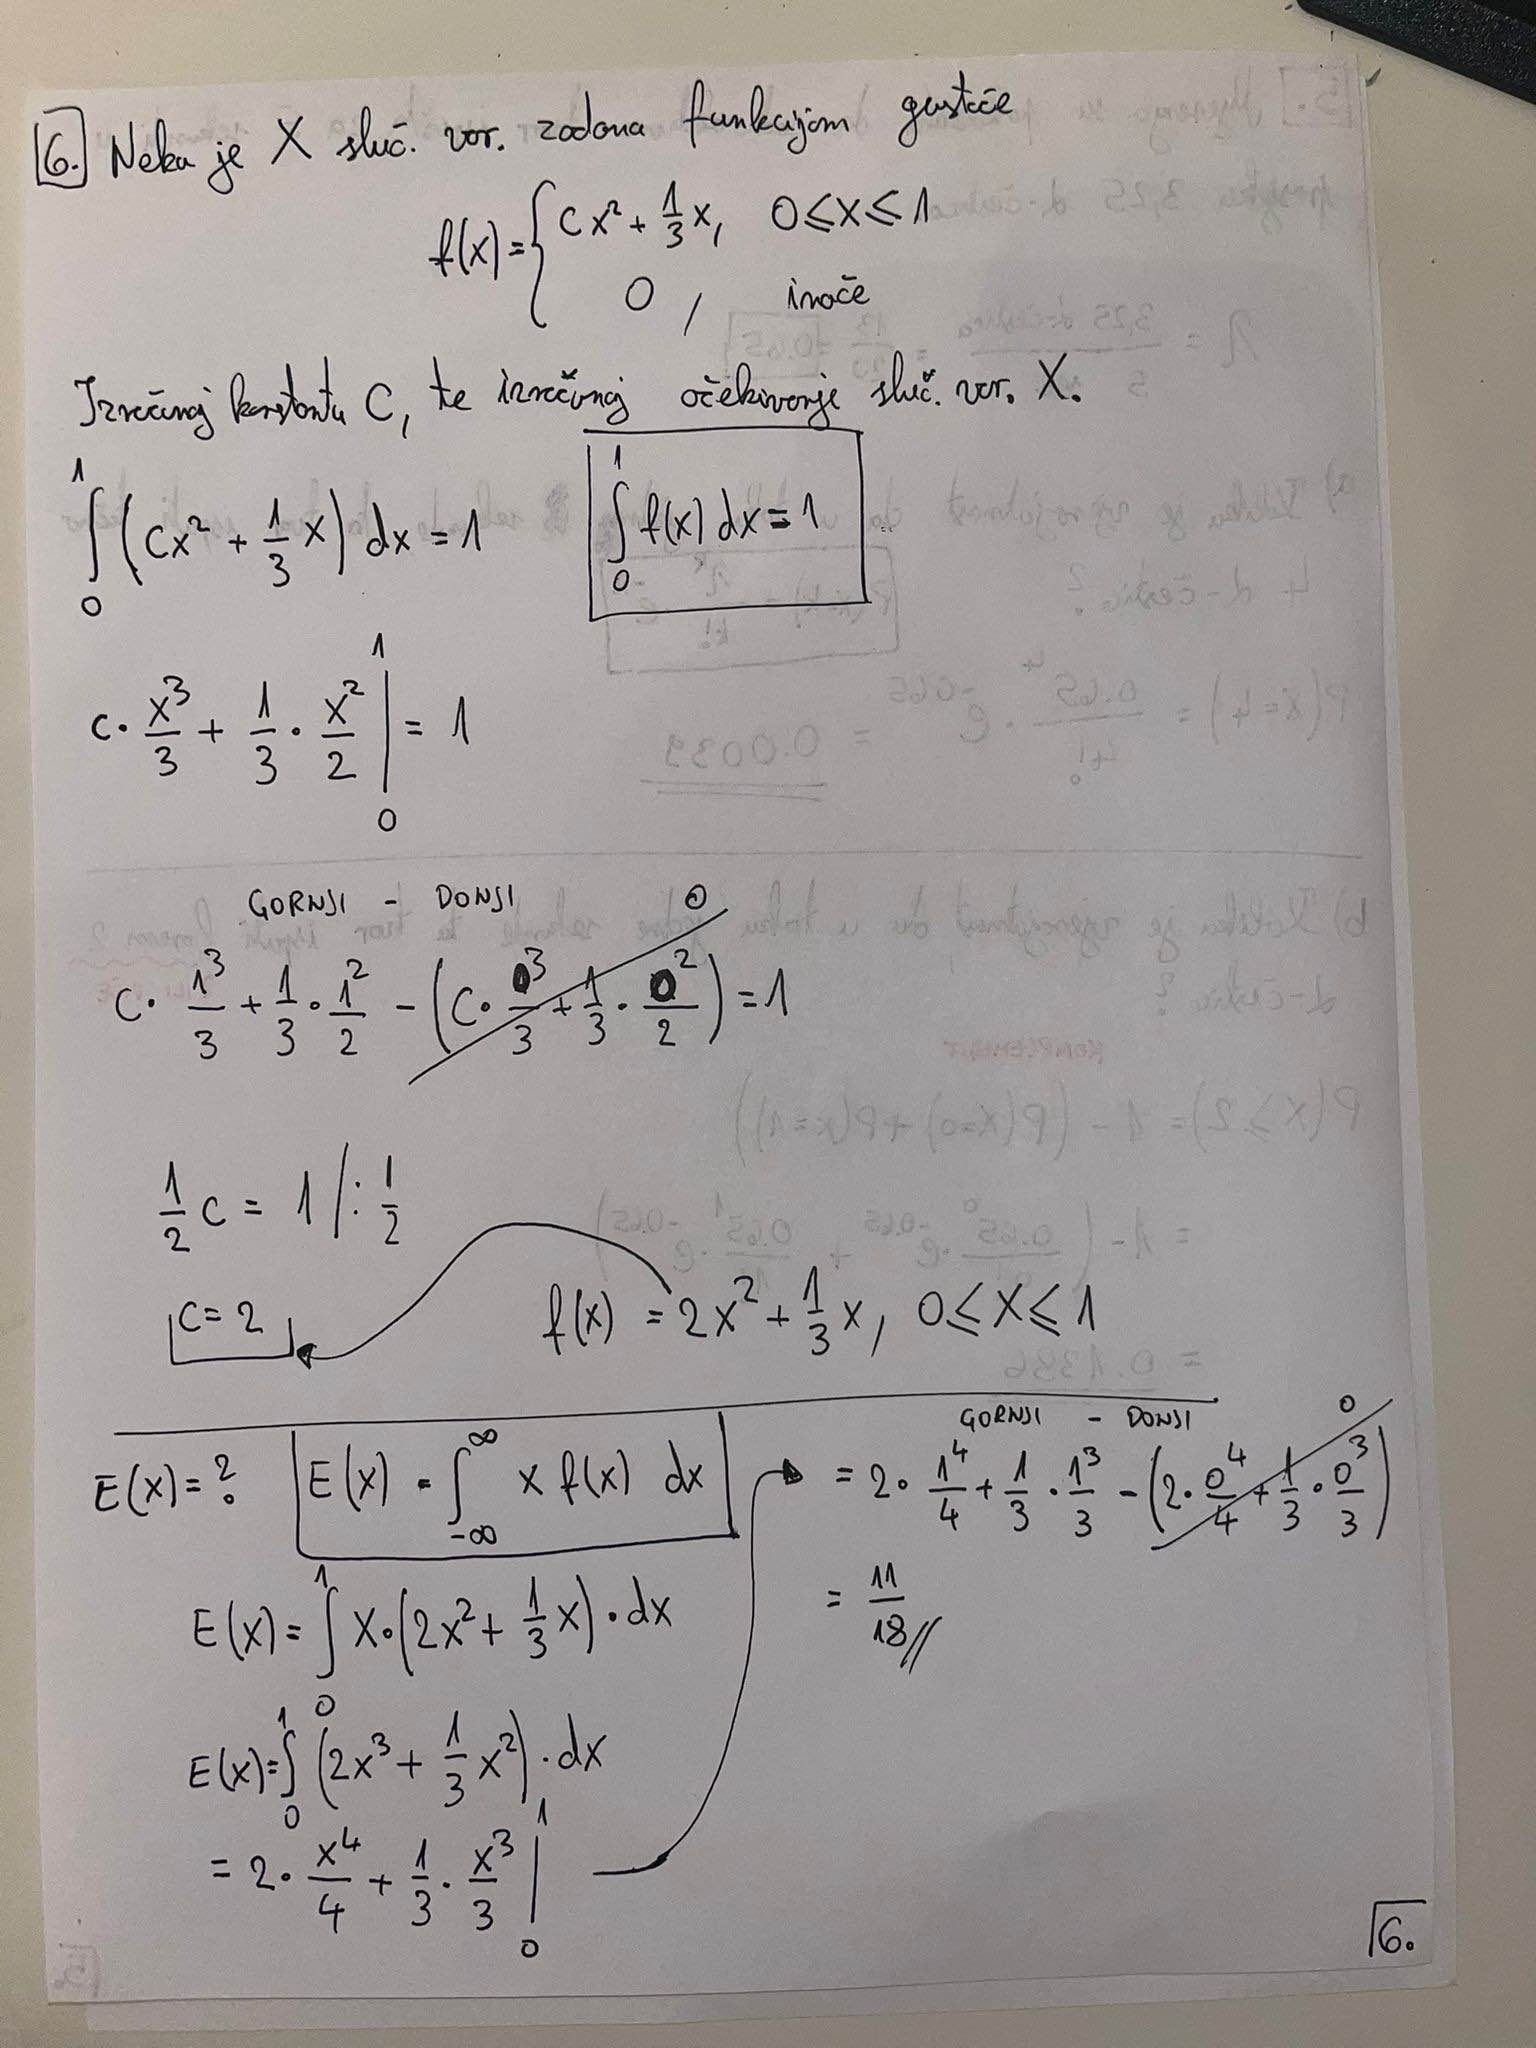 6. Neka je X sluč. var. zadana funkcijom gustoće
f(x) = { Cx² + 1/3 x, 0 ≤ x ≤ 1
0 , inače
Izračunaj konstantu C, te izračunaj očekivanje sluč. var. X.
∫₀¹ (Cx² + 1/3 x) dx = 1 ∫₀¹ f(x) dx = 1
C · x³/3 + 1/3 · x²/2 |₀¹ = 1
GORNJI - DONJI 0
C · 1³/3 + 1/3 · 1²/2 - (C · 0³/3 + 1/3 · 0²/2) = 1
1/2 C = 1 /: 1/2
C = 2 f(x) = 2x² + 1/3 x, 0 ≤ x ≤ 1
E(x) = ? E(x) = ∫_{-∞}^{∞} x f(x) dx
E(x) = ∫₀¹ x · (2x² + 1/3 x) · dx
E(x) = ∫₀¹ (2x³ + 1/3 x²) · dx
= 2 · x⁴/4 + 1/3 · x³/3 |₀¹
GORNJI - DONJI 0
= 2 · 1⁴/4 + 1/3 · 1³/3 - (2 · 0⁴/4 + 1/3 · 0³/3)
= 11/18 //
6.